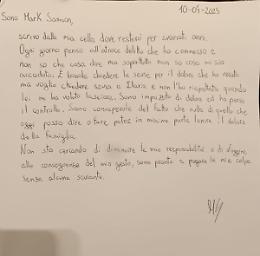 10-05-2025
Sono Mark Samson,
scrivo dalla mia cella dove resterò per svariati anni.
Ogni giorno penso all'atroce delitto che ho commesso e
non so che cosa dire ma soprattutto non so cosa mi sia
accaduto. È banale chiedere le scuse per il dolore che ho creato
ma voglio chiedere scusa a Ilaria e non l'ho rispettata quando
lei mi ha voluto lasciare. Sono impazzito di dolore ed ho perso
il controllo. Sono consapevole del fatto che nulla di quello che
oggi posso dire o fare potrà in minima parte lenire il dolore
della famiglia.
Non sto cercando di diminuire le mie responsabilità o di sfuggire
alle conseguenze del mio gesto, sono pronto a pagare la mia colpa
senza alcuna scusante.